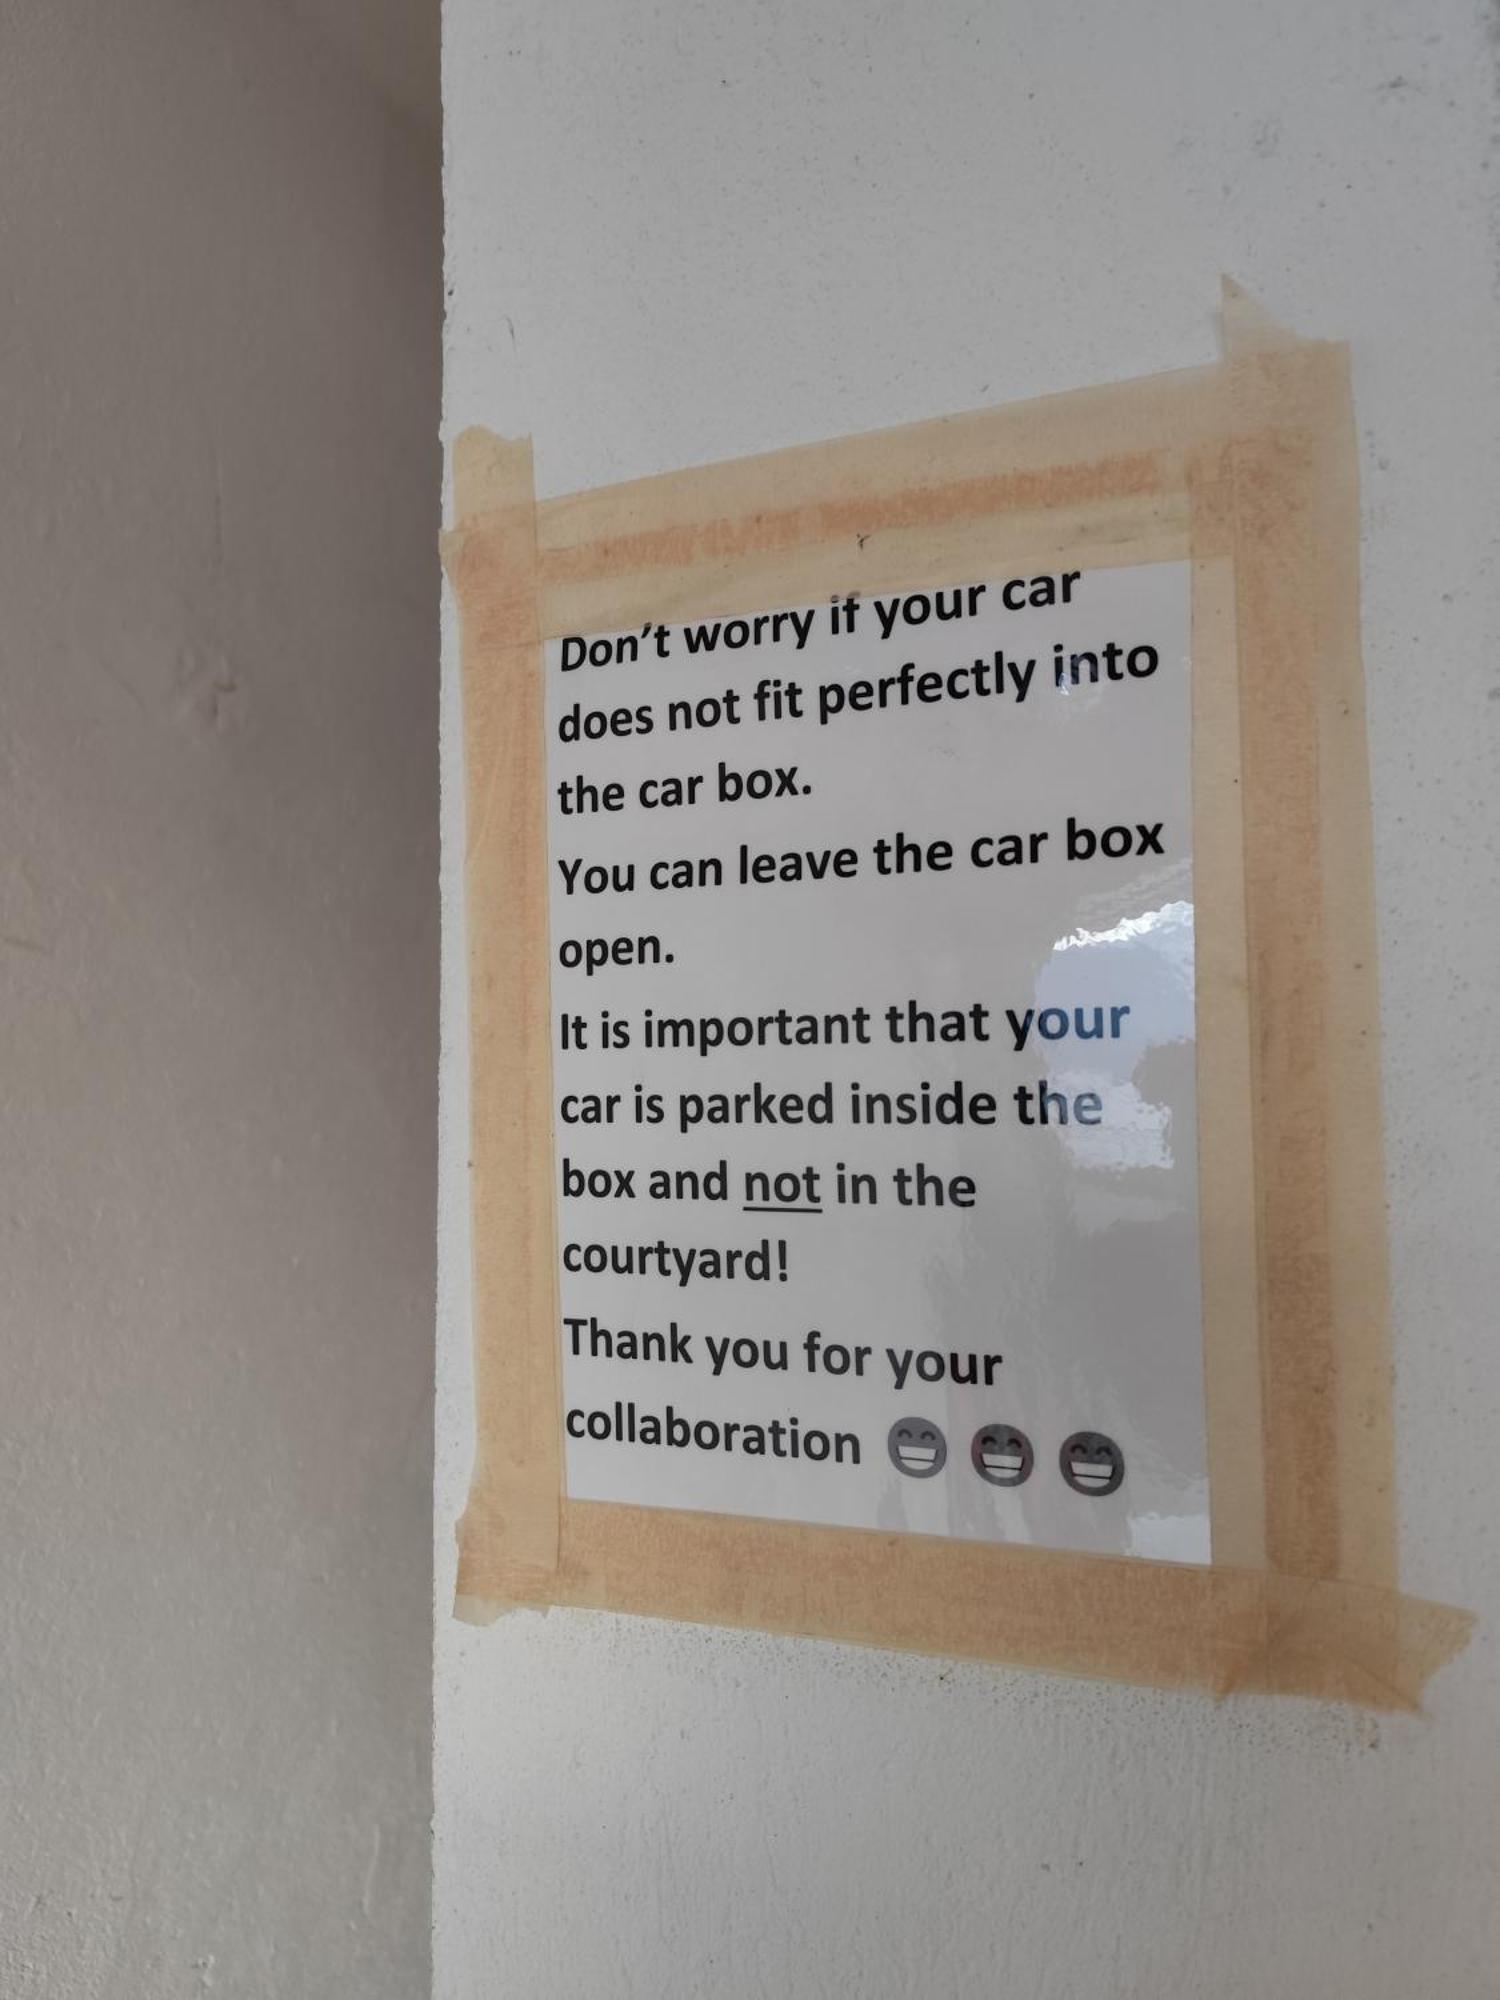 Don't worry if your car
does not fit perfectly into
the car box.
You can leave the car box
open.
It is important that your
car is parked inside the
box and not in the
courtyard!
Thank you for your
collaboration 😁 😁 😁